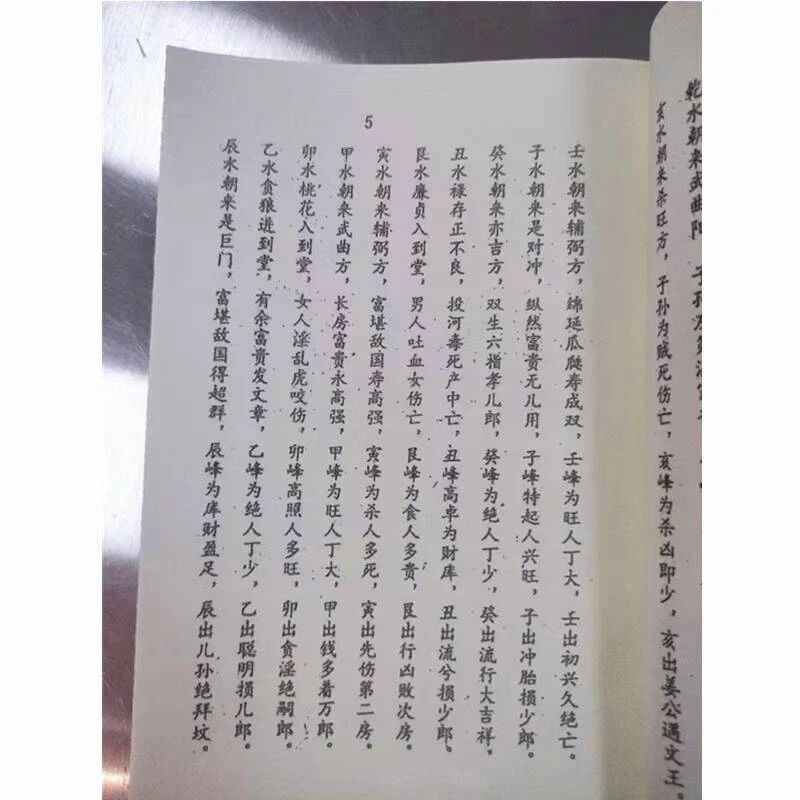 乾水朝来武曲
亥水朝来杀旺方，子孙为贼死伤亡，亥峰为杀凶即少，亥出姜公遇文王。
壬水朝来辅弼方，绵延瓜瓞寿成双，壬峰为旺人丁大，壬出初兴久绝亡。
子水朝来是对冲，纵然富贵无儿用，子峰特起人兴旺，子出冲胎损少郎。
癸水朝来亦吉方，双生六指孝儿郎，癸峰为绝人丁少，癸出流行大吉祥。
丑水禄存正不良，投河毒死产中亡，丑峰高卓为财库，丑出流兮损少郎。
艮水廉贞入到堂，男人吐血女伤亡，艮峰为食人多贵，艮出行凶败次房。
寅水朝来辅弼方，富堪敌国寿高强，寅峰为杀人多死，寅出先伤第二房。
甲水朝来武曲方，长房富贵永高强，甲峰为旺人丁大，甲出钱多着万郎。
卯水桃花入到堂，女人淫乱虎咬伤，卯峰高照人多旺，卯出贪淫绝嗣郎。
乙水贪狼进到堂，有余富贵发文章，乙峰为绝人丁少，乙出聪明损儿郎。
辰水朝来是巨门，富堪敌国得超群，辰峰为库财盈足，辰出儿孙绝拜坟。
5